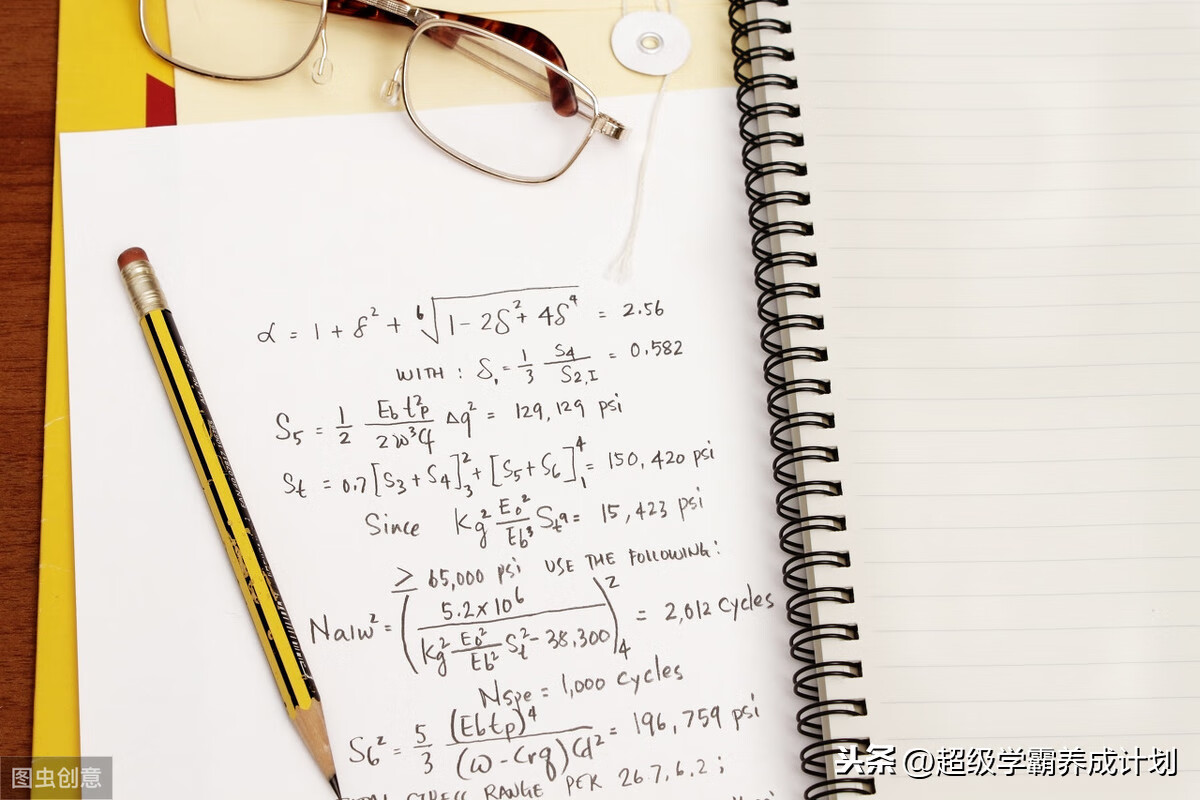 α = 1 + δ² + ⁶√(1 - 2δ² + 4δ⁴) = 2.56
WITH : δ₁ = 1/3 S4/S2,I = 0.582
S₅ = 1/2 Eb t²p / 2w³Cf Δq² = 129,129 psi
St = 0.7 [S₃ + S₄]²₃ + [S₅ + S₆]⁴₁ = 150,420 psi
Since Kg² Eo²/Eb³ Stª = 15,423 psi
≥ 65,000 psi USE THE FOLLOWING:
Nalw² = (5.2 x 10⁶ / Kg² Eo²/Eb² St² - 38,300)²₄ = 2,012 cycles
Nspe = 1,000 cycles
S₆² = 5/3 (Ebtp)⁴ / (w - Crq)Cd² = 196,759 psi
STRESS RANGE PER 26.7.6.2 ;
图虫创意
头条 @超级学霸养成计划